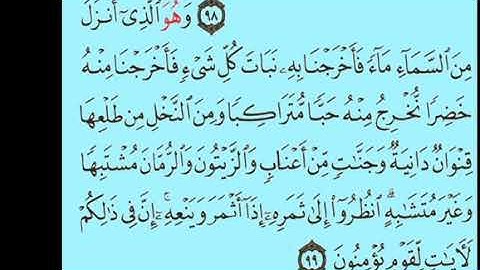 ٩٨ وَهُوَ ٱلَّذِىٓ أَنزَلَ
مِنَ ٱلسَّمَآءِ مَآءً فَأَخْرَجْنَا بِهِۦ نَبَاتَ كُلِّ شَىْءٍ فَأَخْرَجْنَا مِنْهُ
خَضِرًا نُّخْرِجُ مِنْهُ حَبًّا مُّتَرَاكِبًا وَمِنَ ٱلنَّخْلِ مِن طَلْعِهَا
قِنْوَانٌ دَانِيَةٌ وَجَنَّٰتٍ مِّنْ أَعْنَابٍ وَٱلزَّيْتُونَ وَٱلرُّمَّانَ مُشْتَبِهًا
وَغَيْرَ مُتَشَٰبِهٍ ۗ ٱنظُرُوٓا۟ إِلَىٰ ثَمَرِهِۦٓ إِذَآ أَثْمَرَ وَيَنْعِهِۦٓ ۚ إِنَّ فِى ذَٰلِكُمْ
لَءَايَٰتٍ لِّقَوْمٍ يُؤْمِنُونَ ٩٩